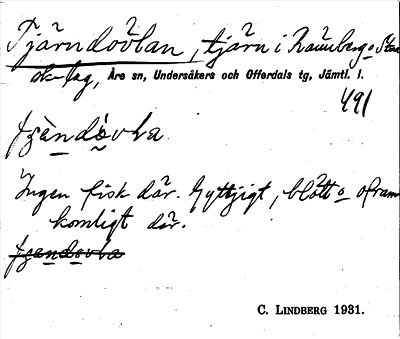 Tjärndovlan, tjärn i Ränneberg o.
sk lag, Åre sn, Undersåkers och Offerdals tg, Jämtl. l.
491
Ingen fisk där. Gyttjigt, blött o ofram
komligt där.
C. LINDBERG 1931.